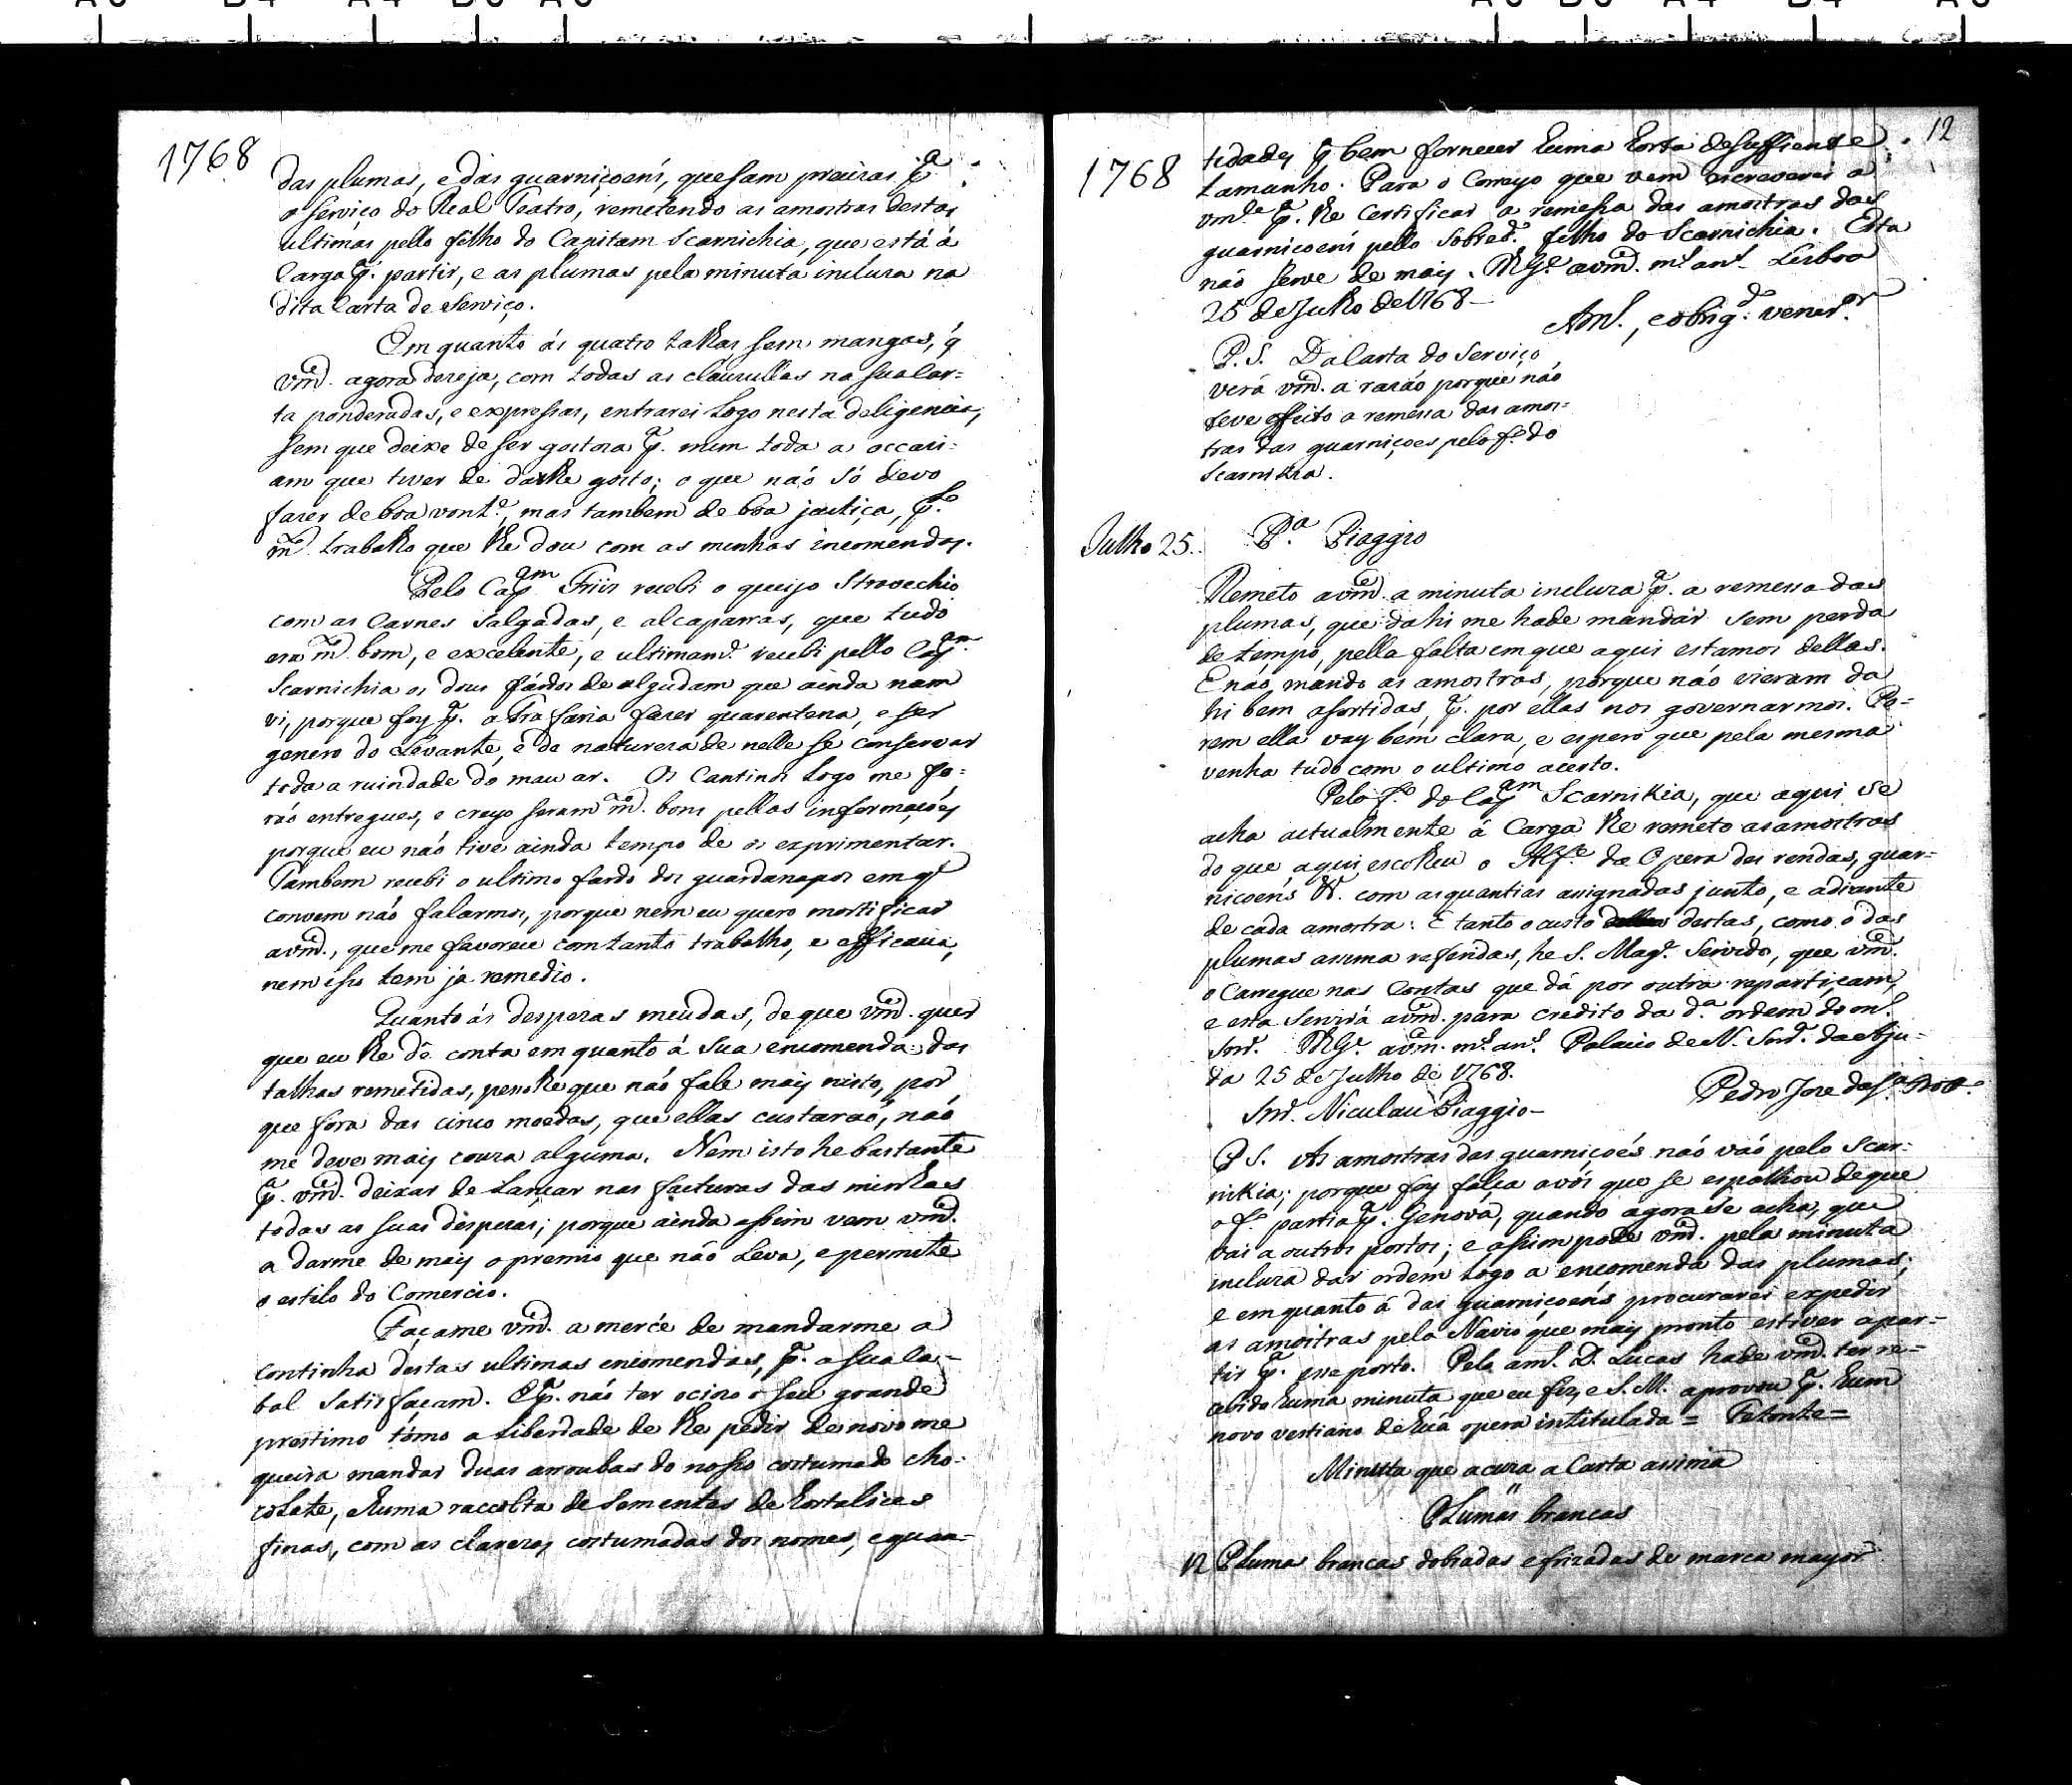 1768
das plumas, e das guarniçoens, que sam precizas pa.
o serviço do Real Teatro, remetendo as amostras destas
ultimas pello filho do Capitam Scarnichia, que está á
Carga pa. partir, e as plumas pela minuta incluza na
dita Carta de Serviço.
Em quanto ás quatro talhas sem mangas, q̃
vmce. agora dezeja, com todas as clauzullas na sua Car=
ta ponderadas, e expressas, entrarei logo nesta deligencia,
sem que deixe de ser gostoza pa. mim toda a occazi=
am que tiver de darlhe gosto; o que não só devo
fazer de boa vonte., mas tambem de boa justiça, plo.
mto. trabalho que lhe dou com as minhas incomendas.
Pelo Capam Friis recebi o queijo Stravechio
com as Carnes Salgadas, e alcaparras, que tudo
era mto. bom, e excelente, e ultimame. recebi pello Capam.
Scarnichia os dous fardos de algudam que ainda nam
vi, porque foy pa. a Trafaria fazer quarentena, e ser
genero do Levante, e da natureza de nelle se conservar
toda a ruindade do mau ar. Os Cantinos logo me fo=
rão entregues, e creyo seram mto. bons pellas informações
porque eu não tive ainda tempo de os exprimentar.
Tambem recebi o ultimo fardo dos guardanapos em q̃
convem não falarmos, porque nem eu quero mortificar
a vmce., que me favorece com tanto trabalho, e efficacia,
nem isso tem já remedio.
Quanto ás despezas meudas, de que vmce. quer
que eu lhe dê conta em quanto á sua encomenda das
talhas remetidas, peço lhe que não fale mais nisto, por
que fora das cinco moedas, que ellas custarão, não
me deve mais couza alguma. Nem isto he bastante
pa. vmce. deixar de lançar nas facturas das minhas
todas as suas despezas; porque ainda assim vem vmce.
a darme de mais o premio que não leva, e permite
o estilo do Comercio.
Façame vmce. a mercê de mandarme a
continha destas ultimas encomendas, pa. a sua ca=
bal satisfaçam. E pa. não ter ociozo o seu grande
prestimo tómo a liberdade de lhe pedir de novo me
queira mandar duas arroubas do nosso costumado cho=
colate, e huma raccolta de sementes de hortalices
finas, com as clarezas costumadas dos nomes, e quan=
12
1768
tidades q̃ bem fornecer huma horta de suffiente
tamanho. Para o Correyo que vem escreverei a
vmce pa. lhe certificar a remessa das amostras das
guarniçoens pello sobredo. filho do Scarnichia. Esta
não serve de mais. D Gde. a vmce. ms. ans. Lisboa
25 de Julho de 1768 –
Amo., e obrigdo. veneror.
P. S. Da Carta do Serviço
verá vmce. a razão porque não
teve effeito a remessa das amos=
tras das guarniçoes pelo fo. do
Scarnikia.
Julho 25.
Pa. Piaggio
Remeto a vmce. a minuta incluza pa. a remessa das
plumas, que dahi me hade mandar sem perda
de tempo, pella falta em que aqui estamos dellas.
E não mando as amostras, porque não vieram da
hi bem asortidas, pa. por ellas nos governarmos. Po=
rem ella vay bem clara, e espero que pela mesma
venha tudo com o ultimo acerto.
Pelo fo. do Capam Scarnikia, que aqui se
acha actualmente á Carga lhe remeto as amostras
do que aqui escolheu o Alfe. da Opera das rendas, guar=
niçoens &. com as quantias asignadas junto, e adiante
de cada amostra: E tanto o custo destas, como o das
plumas assima referidas, he S. Mage. Servido, que vmce.
o Carregue nas Contas que dá por outra repartiçam,
e esta Servirá a vmce. para credito da da. ordem do mo.
Snr. D Gde. a vmce. ms. ans. Palacio de N. Snra. da Aju=
da 25 de Julho de 1768.
Pedro Joze da Sa. Boto.
Snr. Niculau Piaggio –
P S. As amostras das guarniçoẽs não vão pelo Scar=
nikia; porque foy falça a vós que se espalhou de que
o fo. partia pa. Genova, quando agora se acha, que
vai a outros portos; e assim pode vmce. pela minuta
incluza dar ordem logo a encomenda das plumas;
e em quanto á das guarniçoens procurarei expedir
as amostras pelo Navio que mais pronto estiver a par=
tir pa. esse porto. Pelo amo. D. Lucas hade vmce. ter re=
cebido huma minuta que eu fiz, e S. M. aprovou pa. hum
novo vestiario de huã opera intitulada = Fetonte =
Minuta que acuza a Carta assima
Plumas brancas
12 Plumas brancas dobradas e frizadas de marca mayor